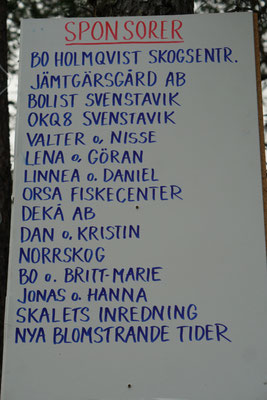 SPONSORER
BO HOLMQVIST SKOGSENTR.
JÄMTGÄRSGÅRD AB
BOLIST SVENSTAVIK
OKQ8 SVENSTAVIK
VALTER o. NISSE
LENA o. GÖRAN
LINNEA o. DANIEL
ORSA FISKECENTER
DEKÅ AB
DAN o. KRISTIN
NORRSKOG
BO o. BRITT-MARIE
JONAS o. HANNA
SKALETS INREDNING
NYA BLOMSTRANDE TIDER